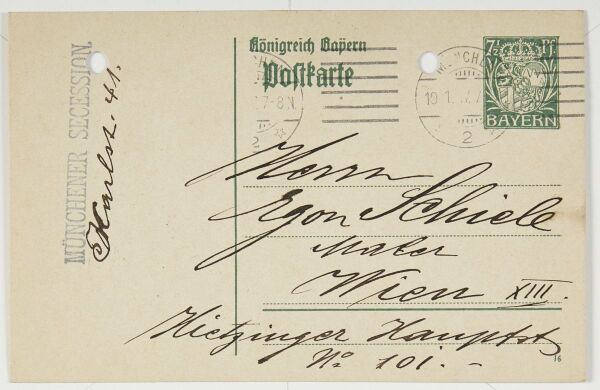 MÜNCHENER SECESSION.
Karlstr. 41.
Königreich Bayern
Postkarte
7½ Pf
BAYERN
MÜNCHEN
2
7-8N
2
Herrn
Egon Schiele
Maler
Wien XIII.
Hietzinger Hauptstr
No 101.-
16